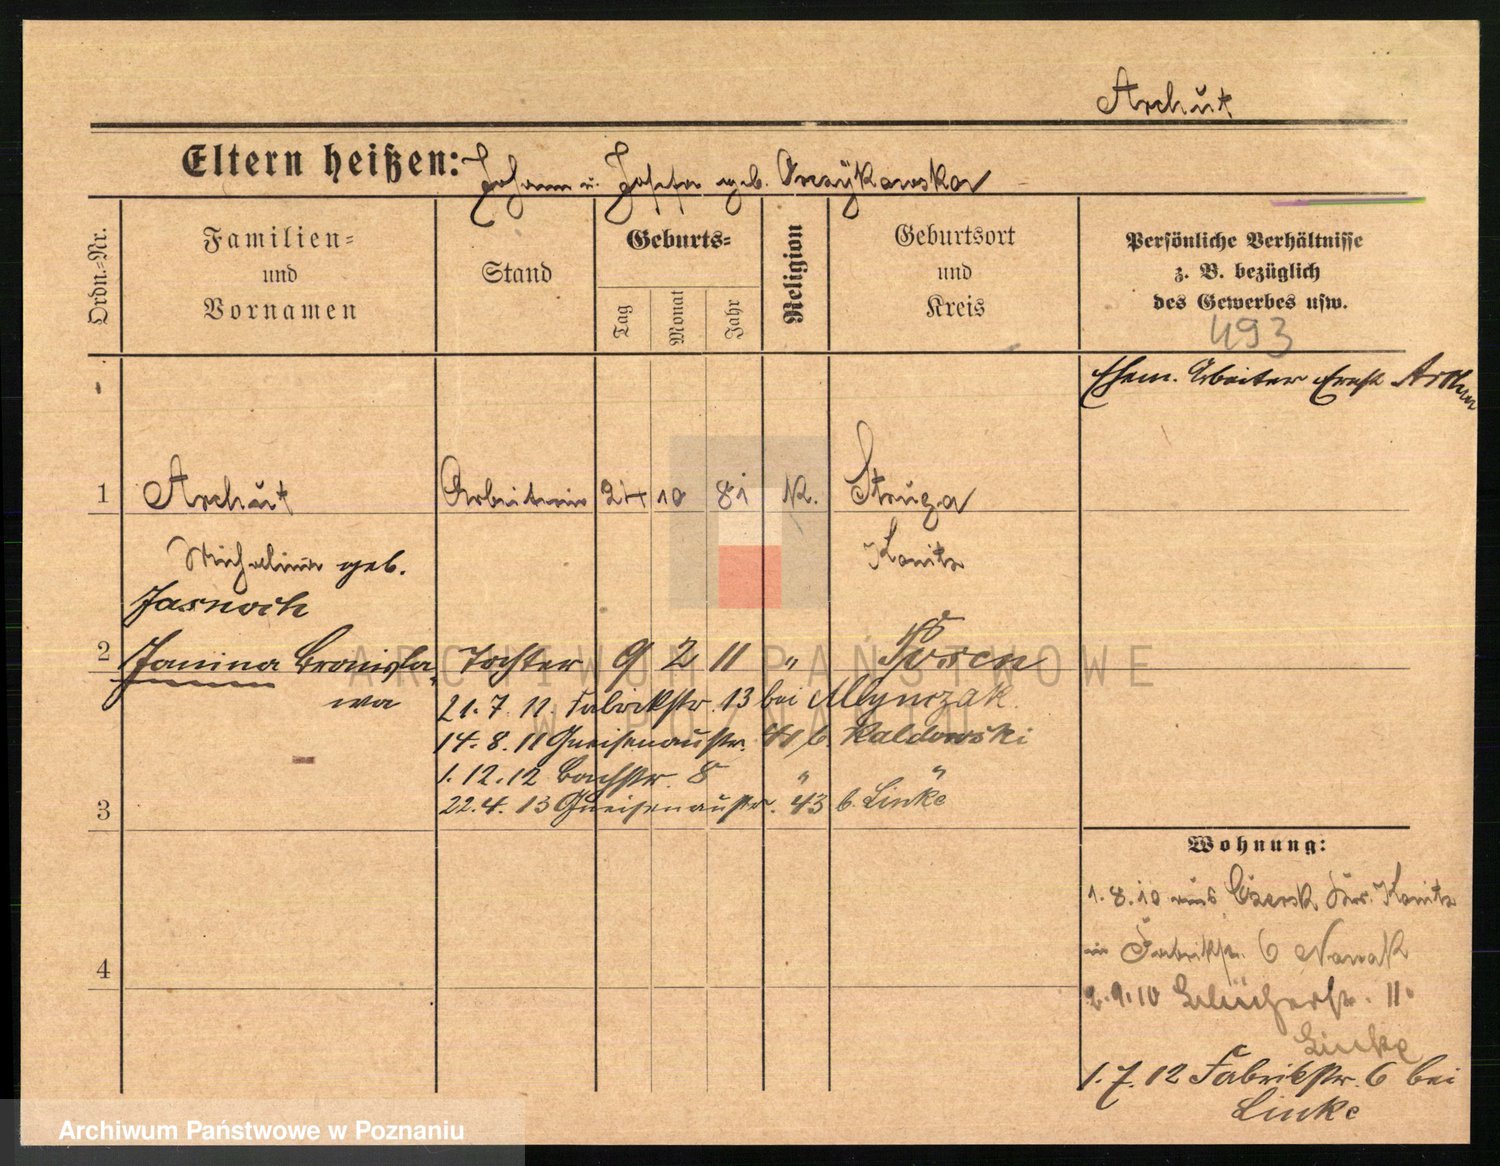 Archut
Eltern heißen: Johann u. Josefa geb.
Ordn.-Nr.
Familien-
und
Vornamen
Stand
Geburts-
Tag
Monat
Jahr
Religion
Geburtsort
und
Kreis
Persönliche Verhältnisse
z. B. bezüglich
des Gewerbes usw.
493
Ehem. Arbeiter Ernst Arthur
1 Archut Arbeiterin 24 10 81 K. Struga
Michalina geb. Konitz
Jasnoch
2 Janina Bronisla Tochter 9 2 11 " Posen
wa
21.7.11. Fabrikstr. 13 bei Mlynczak
14.8.11 Gneisenaustr. b. Kaldowski
1.12.12 Bachstr. 8 " "
22.4.13 Gneisenaustr. 43 b. Linke
3
4
Wohnung:
1.8.10 aus Czersk Krs. Konitz
in Fabrikstr. 6 Nowak
2.9.10 Blücherstr. 11
Linke
1.7.12 Fabrikstr. 6 bei
Linke
ARCHIWUM PAŃSTWOWE
W POZNANIU
Archiwum Państwowe w Poznaniu